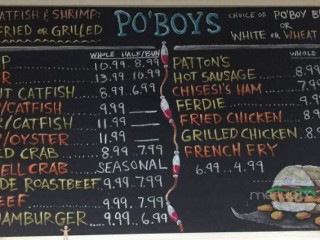 ATFISH & SHRIMP:
FRIED OR GRILLED
PO'BOYS
CHOICE OF PO'BOY B
OR
WHITE OR WHEAT
WHOLE HALF/BUN
P 10.99 8.99
R 13.99 10.99
UT CATFISH 8.99 6.99
/CATFISH 9.99
/CATFISH 11.99
/OYSTER 11.99
ED CRAB 8.99 7.99
ELL CRAB SEASONAL
DE ROASTBEEF 9.99 7.99
EEF 9.99 7.99
HAMBURGER 9.99 6.99
WHOLE
PATTON'S
HOT SAUSAGE 8.99
CHISESI'S HAM 7.99
FERDIE 9.99
FRIED CHICKEN 8.99
GRILLED CHICKEN 8.99
FRENCH FRY
6.99 4.99